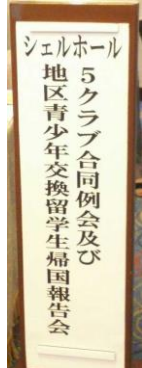 シェルホール
5クラブ合同例会及び
地区青少年交換留学生帰国報告会